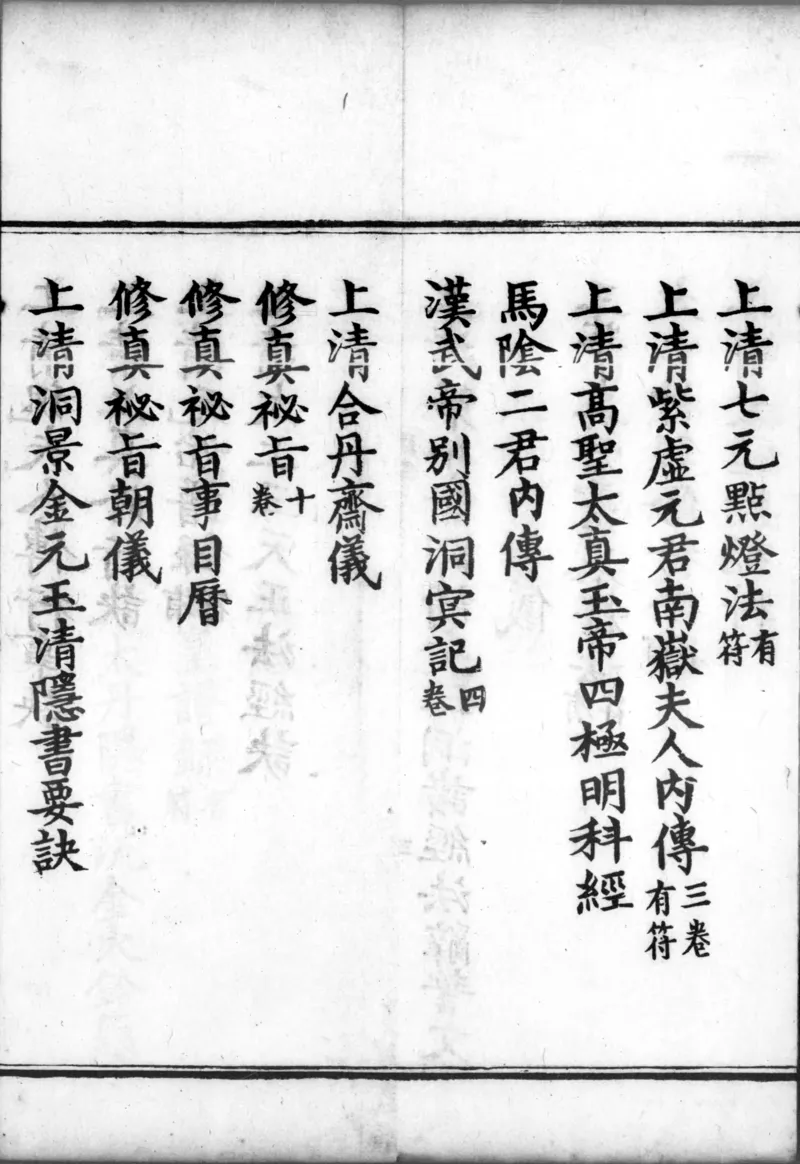 上清七元點燈法有符
上清紫虛元君南嶽夫人內傳三卷有符
上清高聖太真玉帝四極明科經
馬陰二君內傳
漢武帝別國洞冥記四卷
上清合丹齋儀
修真祕旨十卷
修真祕旨事目曆
修真祕旨朝儀
上清洞景金元玉清隱書要訣